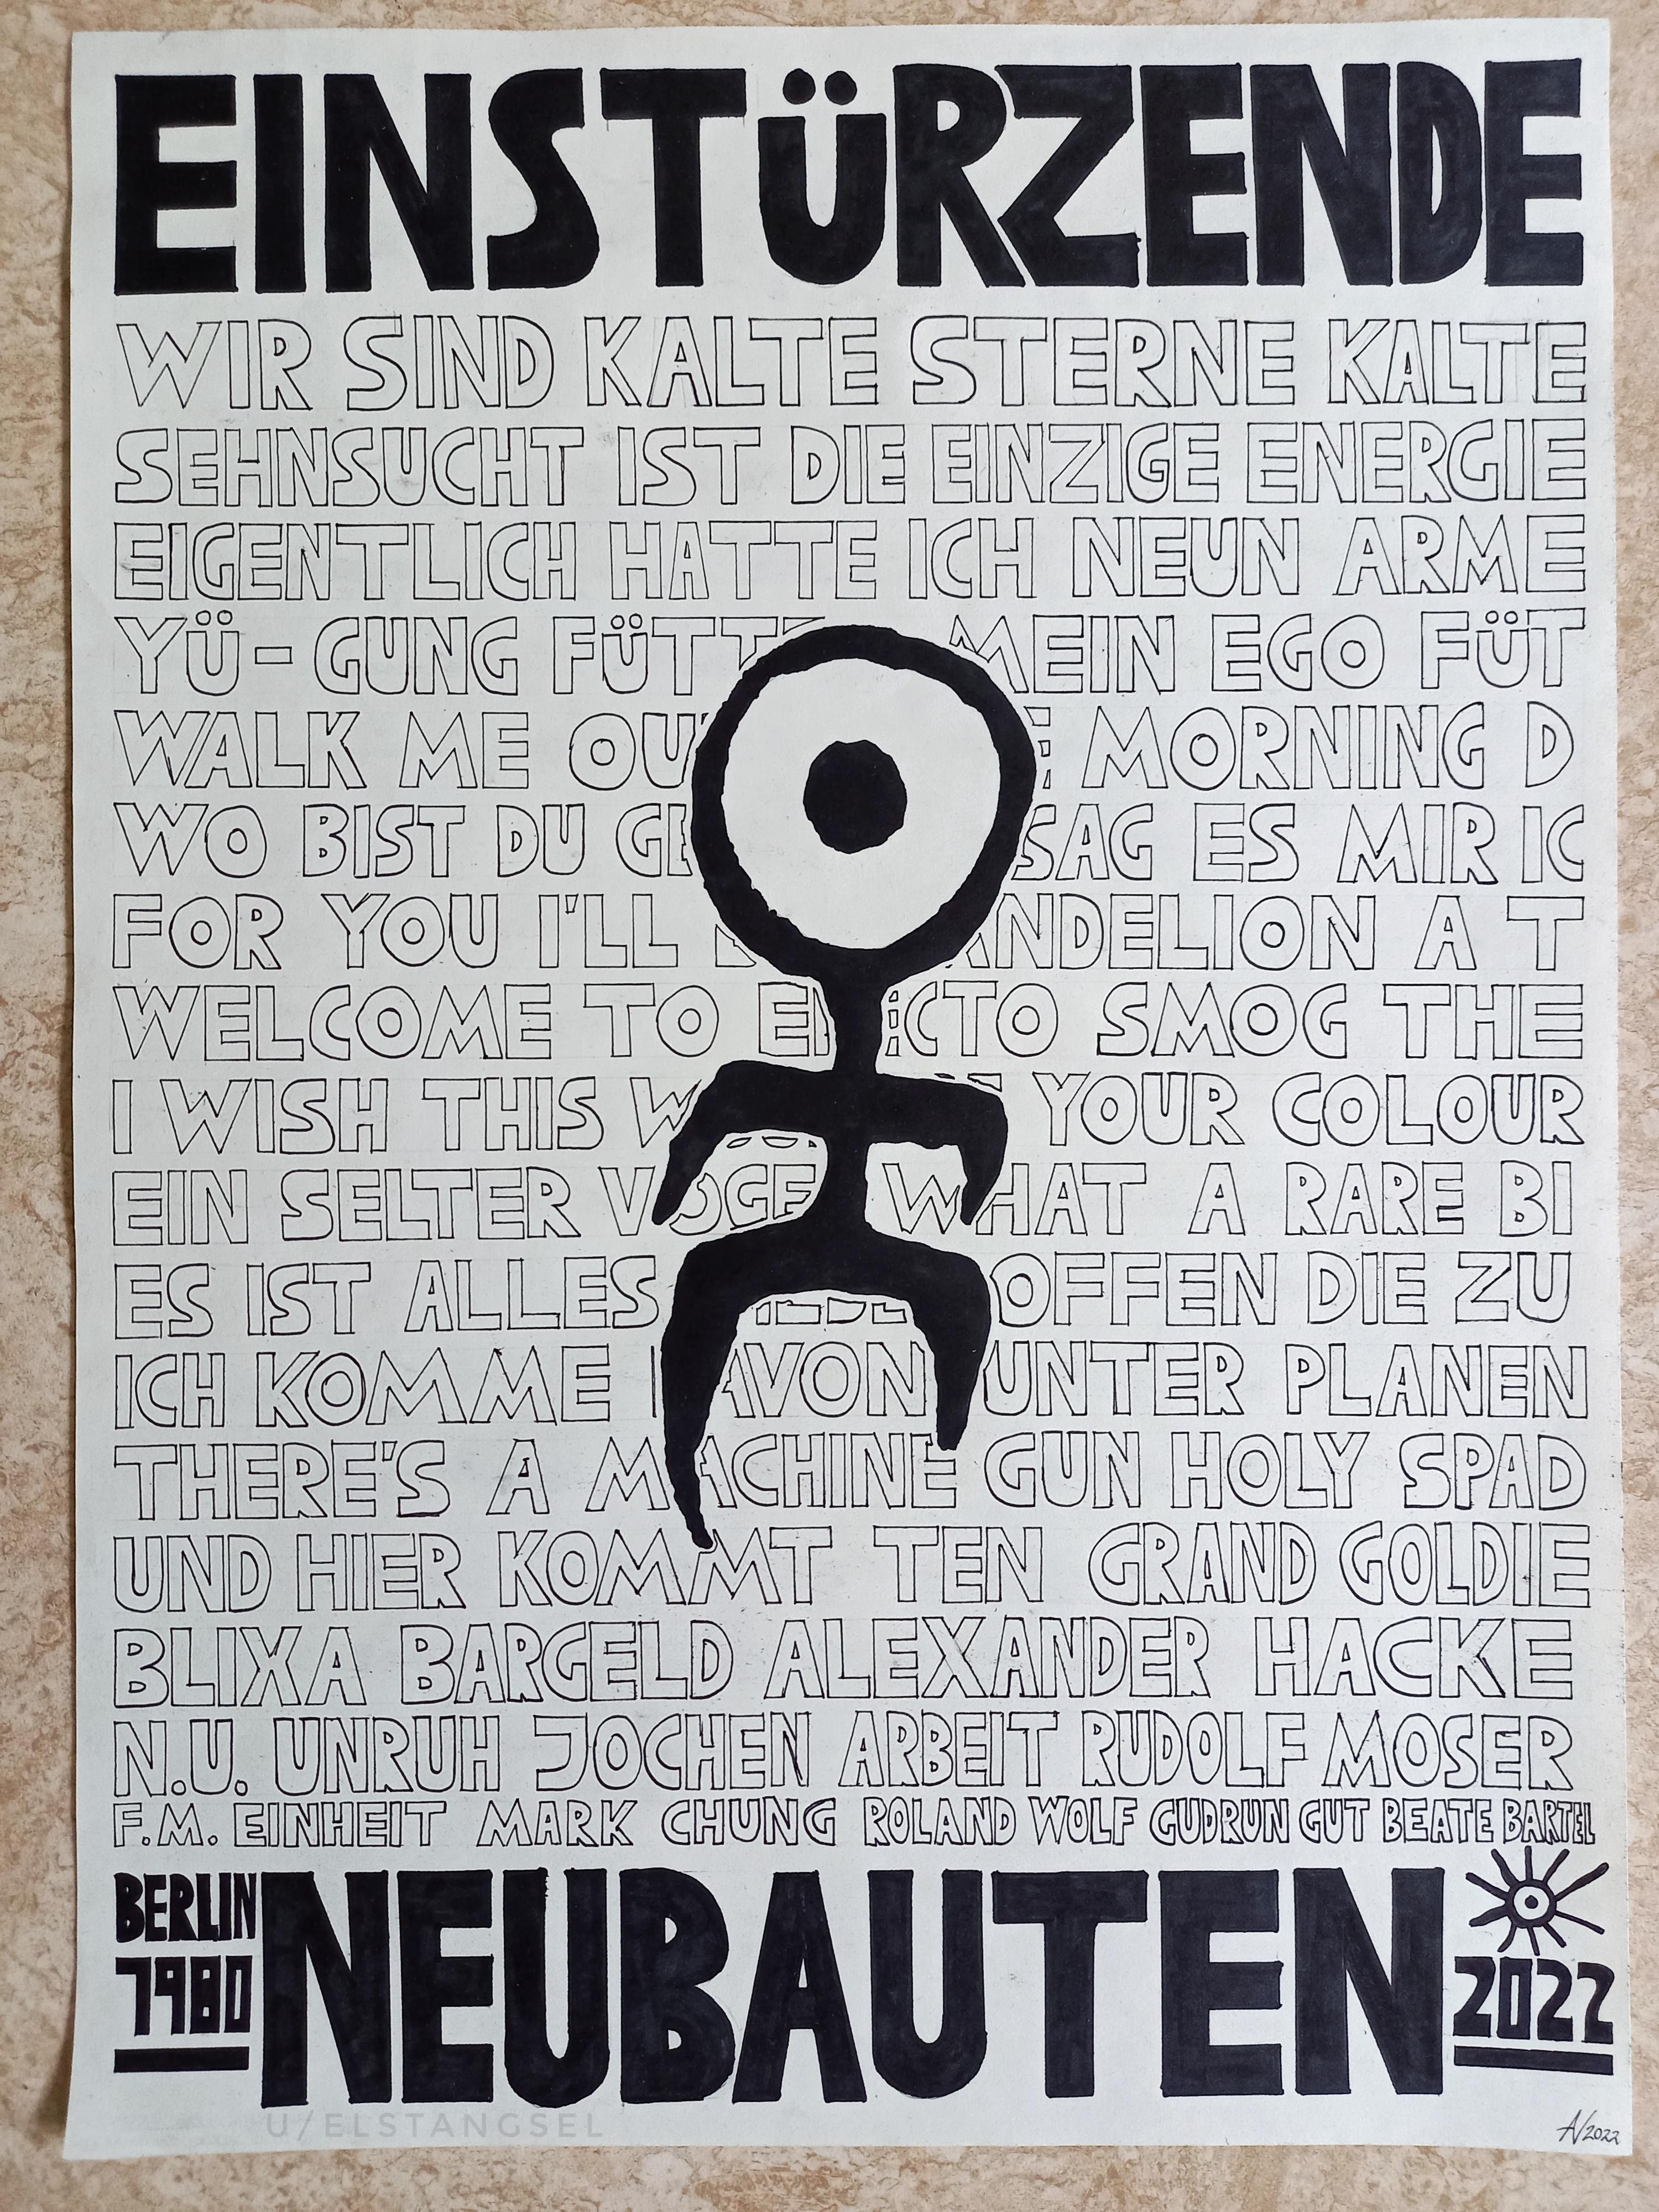 EINSTÜRZENDE
WIR SIND KALTE STERNE KALTE
SEHNSUCHT IST DIE EINZIGE ENERGIE
EIGENTLICH HATTE ICH NEUN ARME
YÜ-GUNG FÜTT MEIN EGO FÜT
WALK ME OU MORNING D
WO BIST DU GE SAG ES MIR IC
FOR YOU I'LL ANDELION A T
WELCOME TO E CTO SMOG THE
I WISH THIS W YOUR COLOUR
EIN SELTER VOGE WHAT A RARE BI
ES IST ALLES OFFEN DIE ZU
ICH KOMME AVON UNTER PLANEN
THERE'S A MACHINE GUN HOLY SPAD
UND HIER KOMMT TEN GRAND GOLDIE
BLIXA BARGELD ALEXANDER HACKE
N.U. UNRUH JOCHEN ARBEIT RUDOLF MOSER
F.M. EINHEIT MARK CHUNG ROLAND WOLF GUDRUN GUT BEATE BARTEL
BERLIN
1980
NEUBAUTEN
2022
U/ELSTANGSEL
AV2022